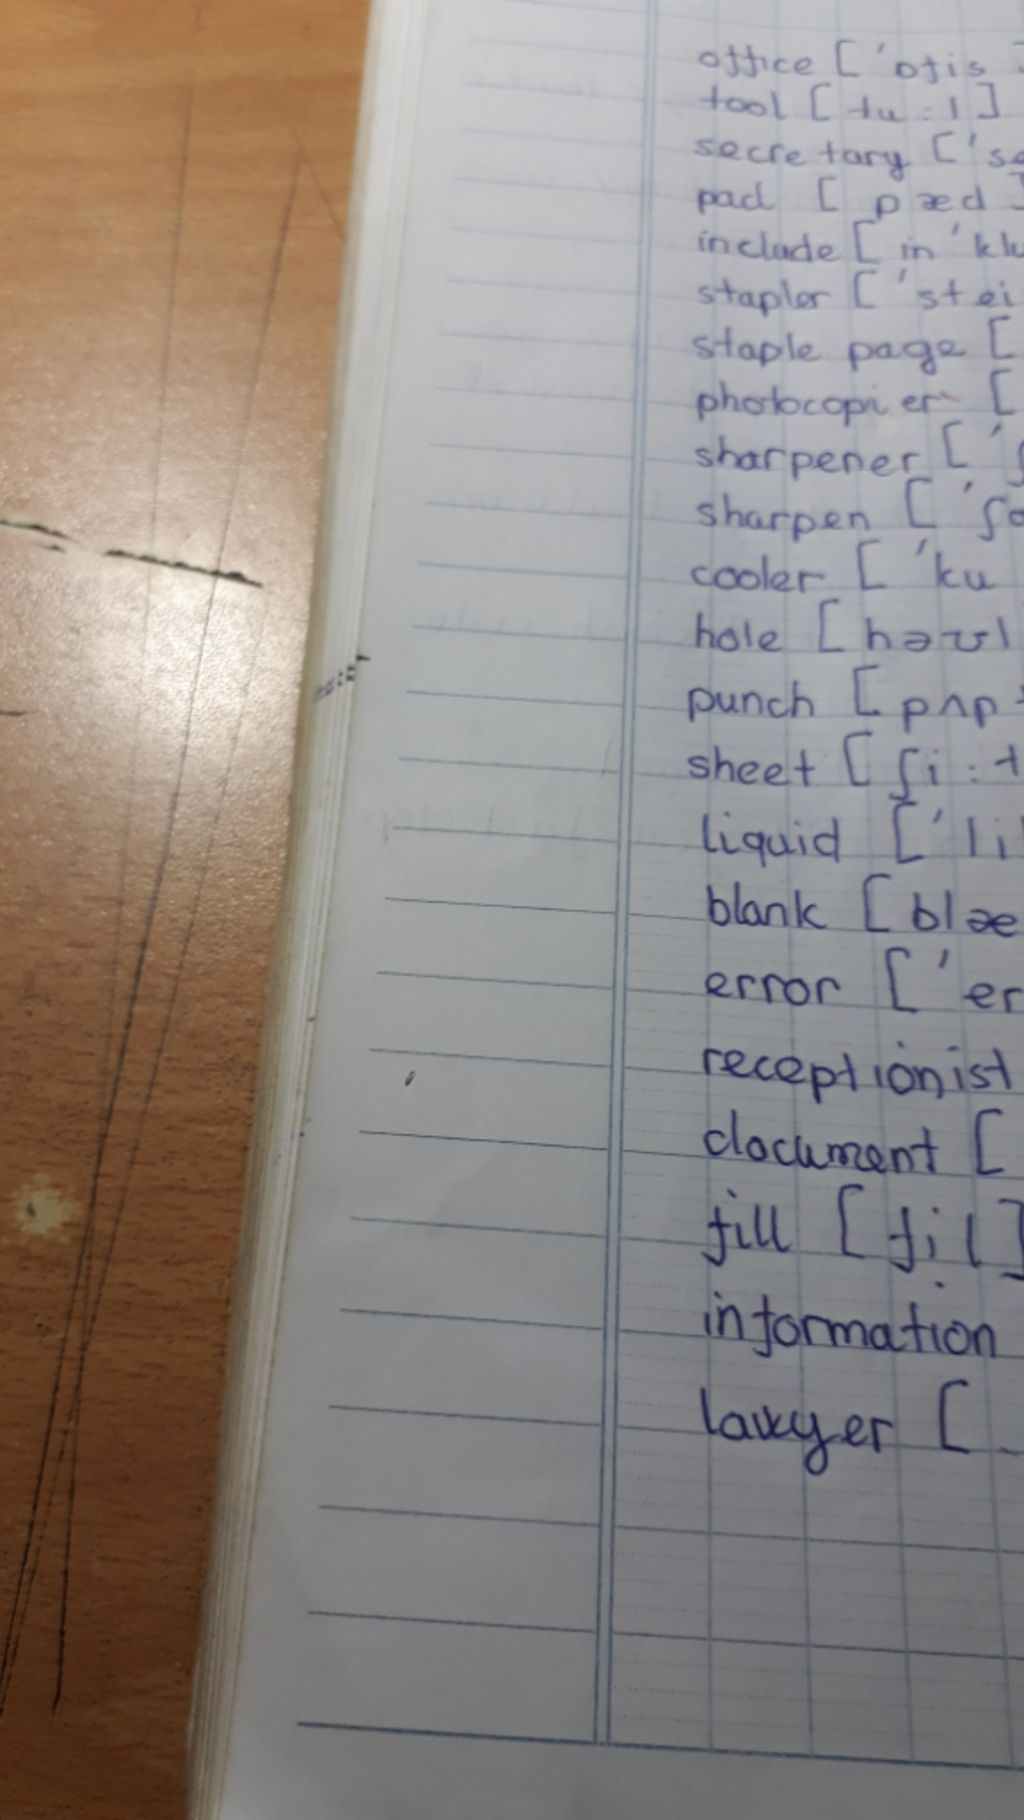 office ['ɒfis
tool [tu:l]
secretary ['se
pad [pæd]
include [in'klu
stapler ['stei
staple page [
photocopier [
sharpener ['ʃ
sharpen ['ʃa
cooler ['ku
hole [həʊl
punch [pʌp
sheet [ʃi:t
liquid ['li
blank [blæ
error ['er
receptionist
document [
fill [fil]
information
lawyer [